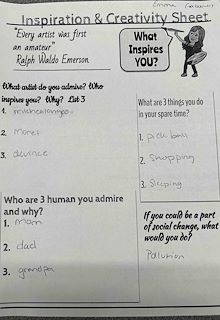 Emma
Inspiration & Creativity Sheet
"Every artist was first
an amateur"
Ralph Waldo Emerson
What
Inspires
YOU?
What artist do you admire? Who
inspires you? Why? List 3
1. michealangelo
2. monet
3. davince
What are 3 things you do
in your spare time?
1. pick ball
2. shopping
3. sleeping
Who are 3 human you admire
and why?
1. mom
2. dad
3. grandpa
If you could be a part
of social change, what
would you do?
Pollution